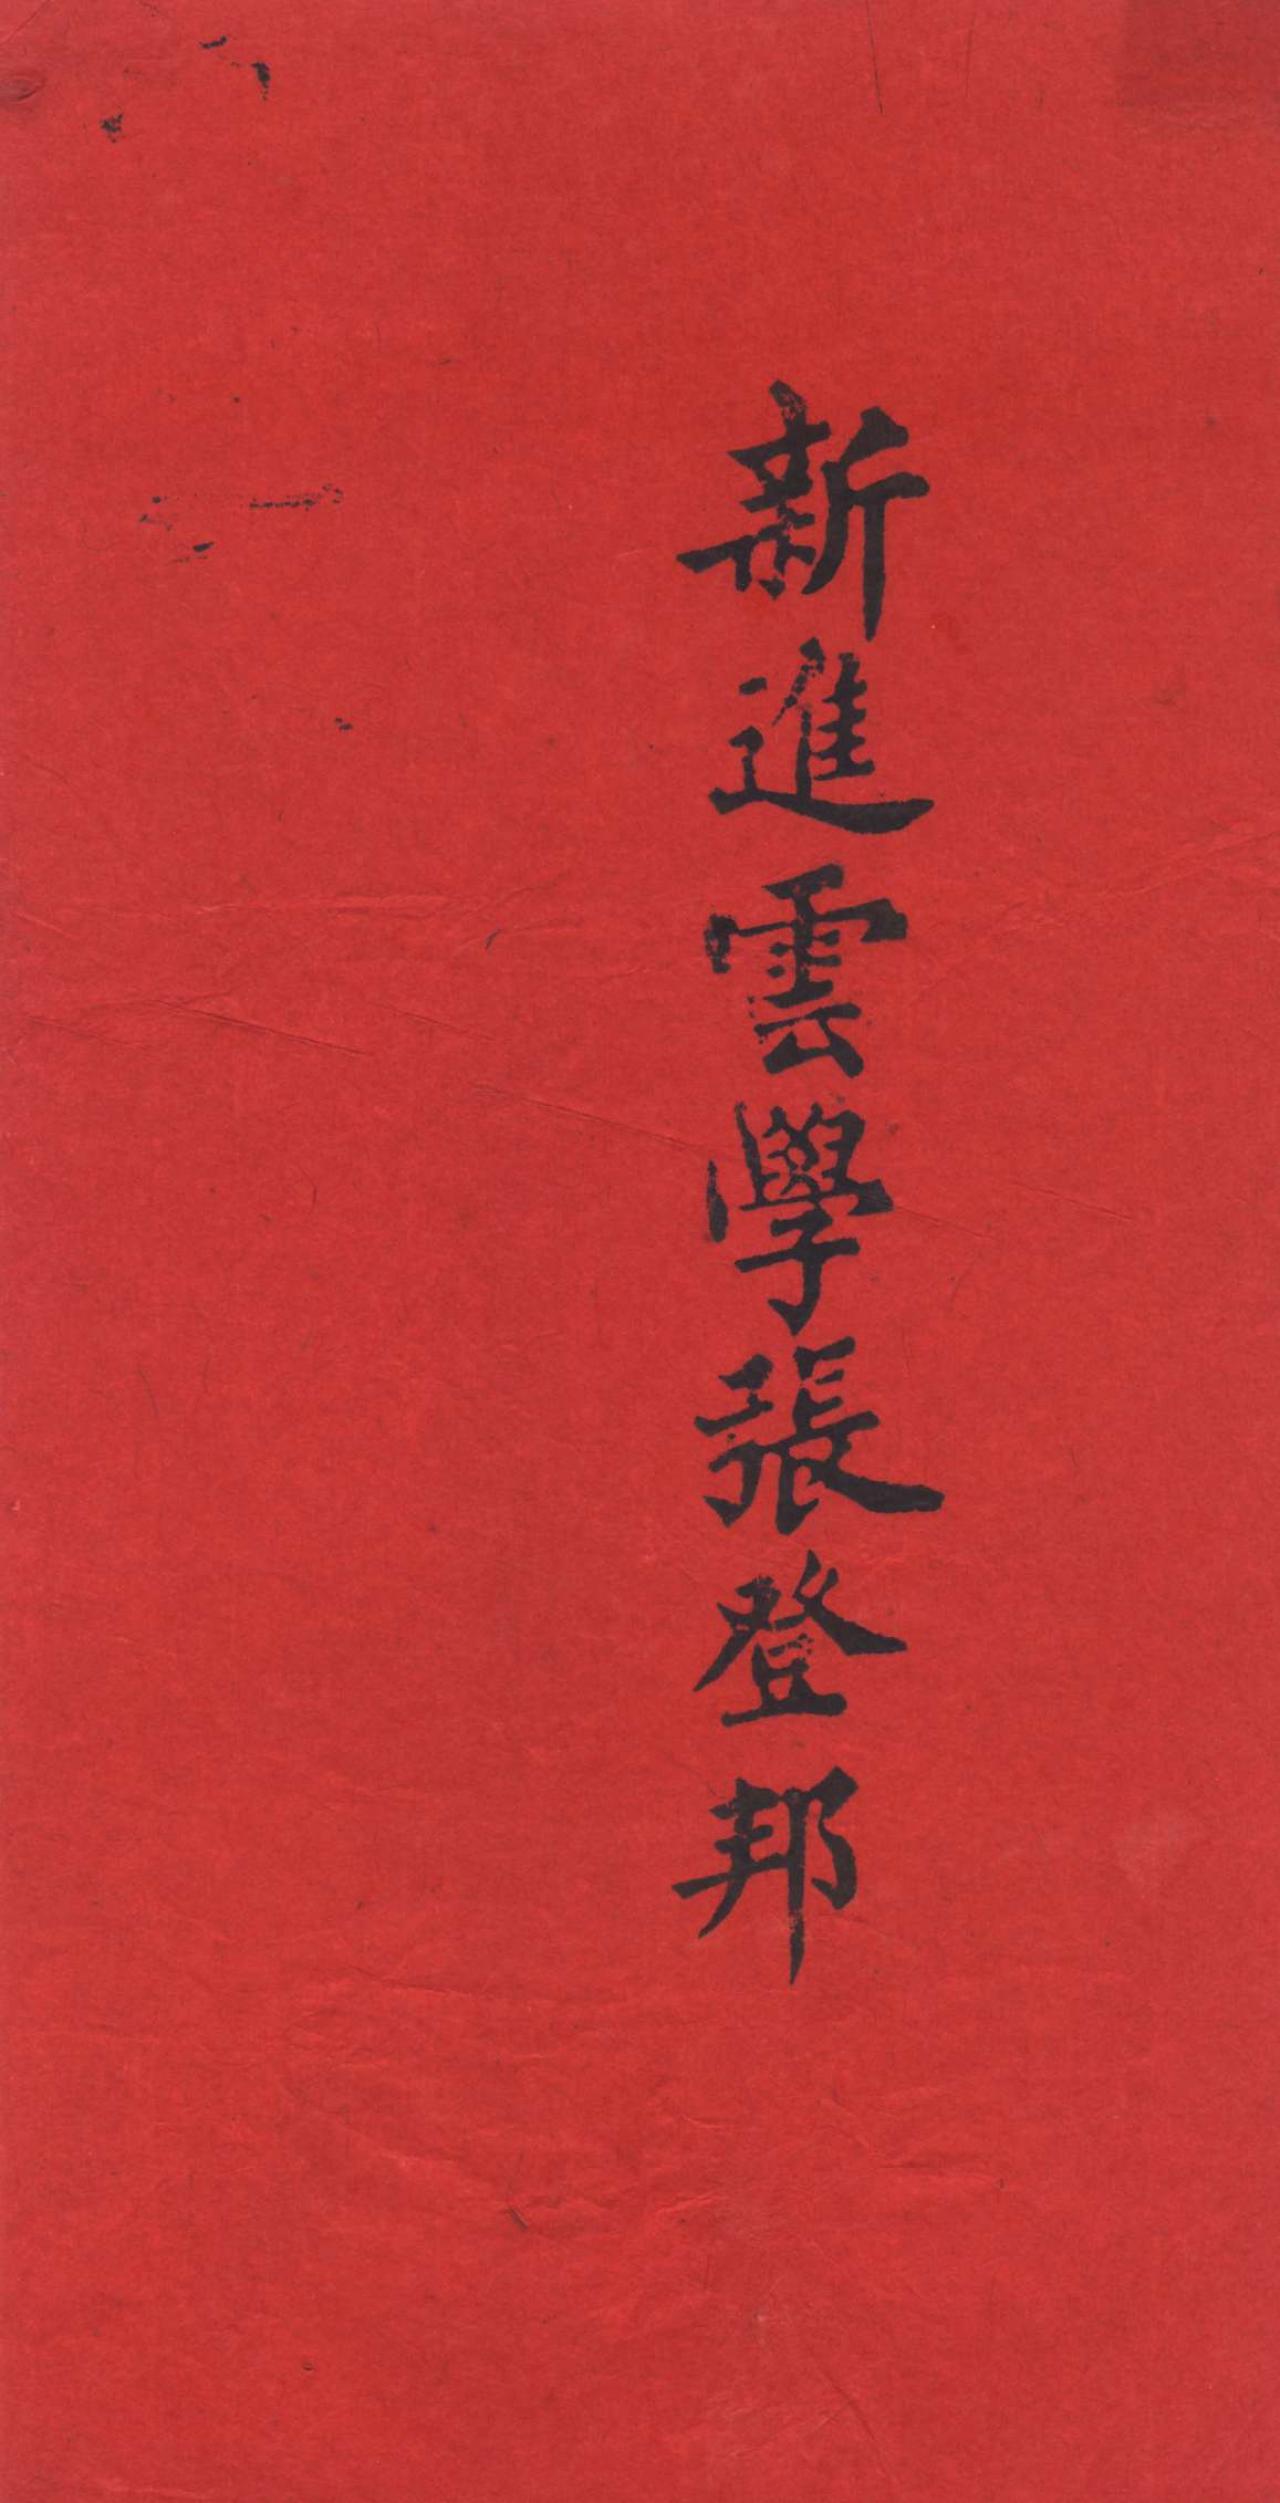 新進雲學張登邦